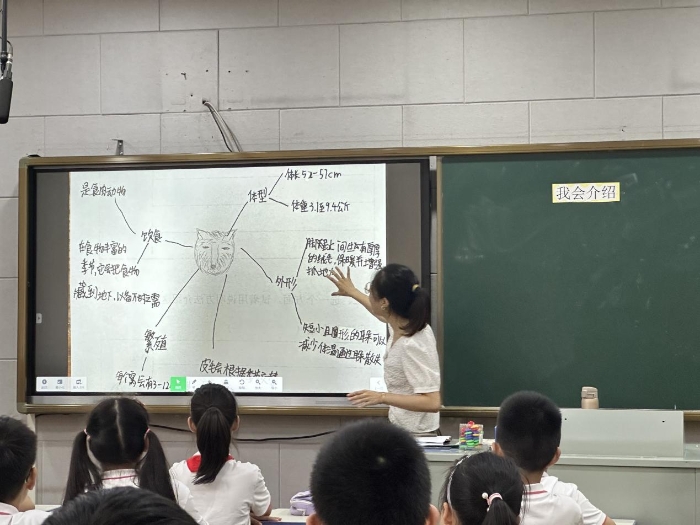 体长52-57cm
体型
体重3.1至9.4公斤
是食肉动物
饮食
在食物丰富的
季节,它会把食物
藏到地下,以备不时之需
繁殖
每窝会有3-12
皮毛会根据
外形
脚底上 间生长有
保暖并增强
抓地
短小且 形的耳朵可以
减少体温通过耳朵散失
我会介绍